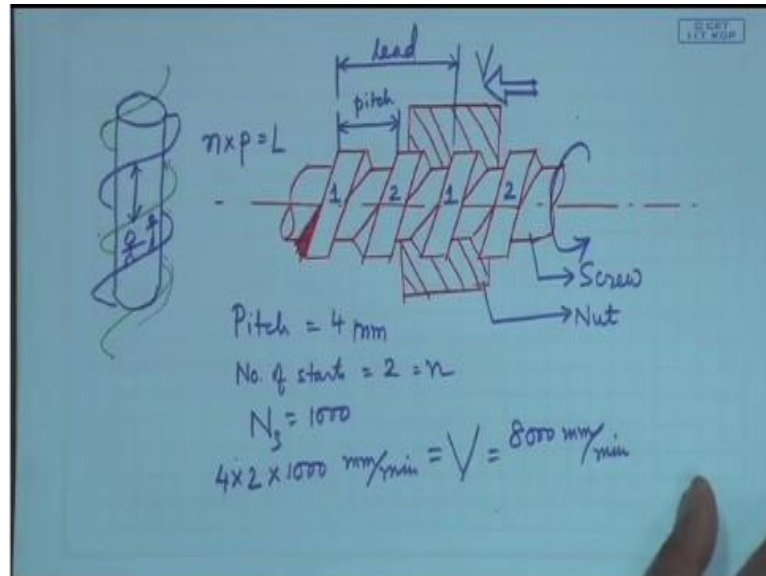 © CET
I.I.T. KGP
lead
V
pitch
n×p=L
1 2 1 2
Screw
Nut
Pitch = 4 mm
No. of starts = 2 = n
Ns = 1000
4×2×1000 mm/min = V = 8000 mm/min